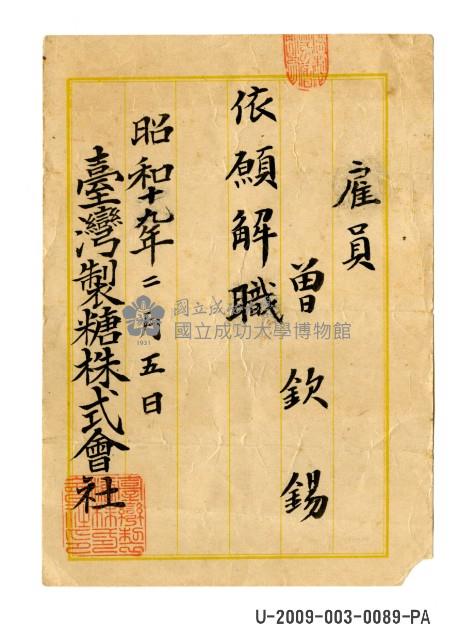 雇員
曽欽錫
依願解職
昭和十九年二月五日
臺灣製糖株式會社
國立成功大學博物館
1931
U-2009-003-0089-PA